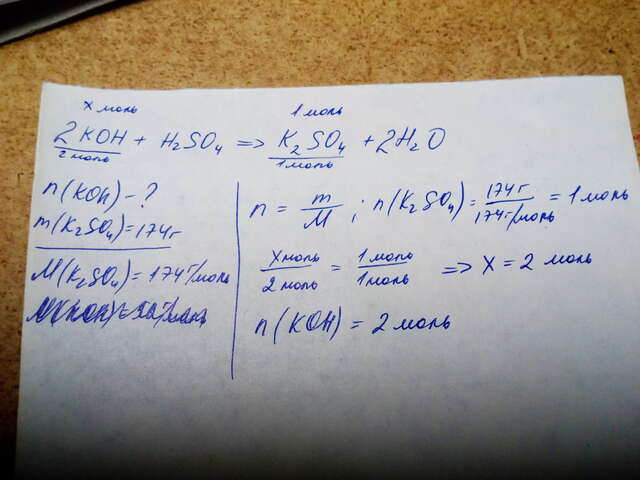 x моль 1 моль
2KOH + H₂SO₄ => K₂SO₄ + 2H₂O
2 моль 1 моль
n(KOH) - ?
m(K₂SO₄) = 174 г
M(K₂SO₄) = 174 г/моль
n = m/M ; n(K₂SO₄) = 174 г / 174 г/моль = 1 моль
x моль / 2 моль = 1 моль / 1 моль => X = 2 моль
n(KOH) = 2 моль